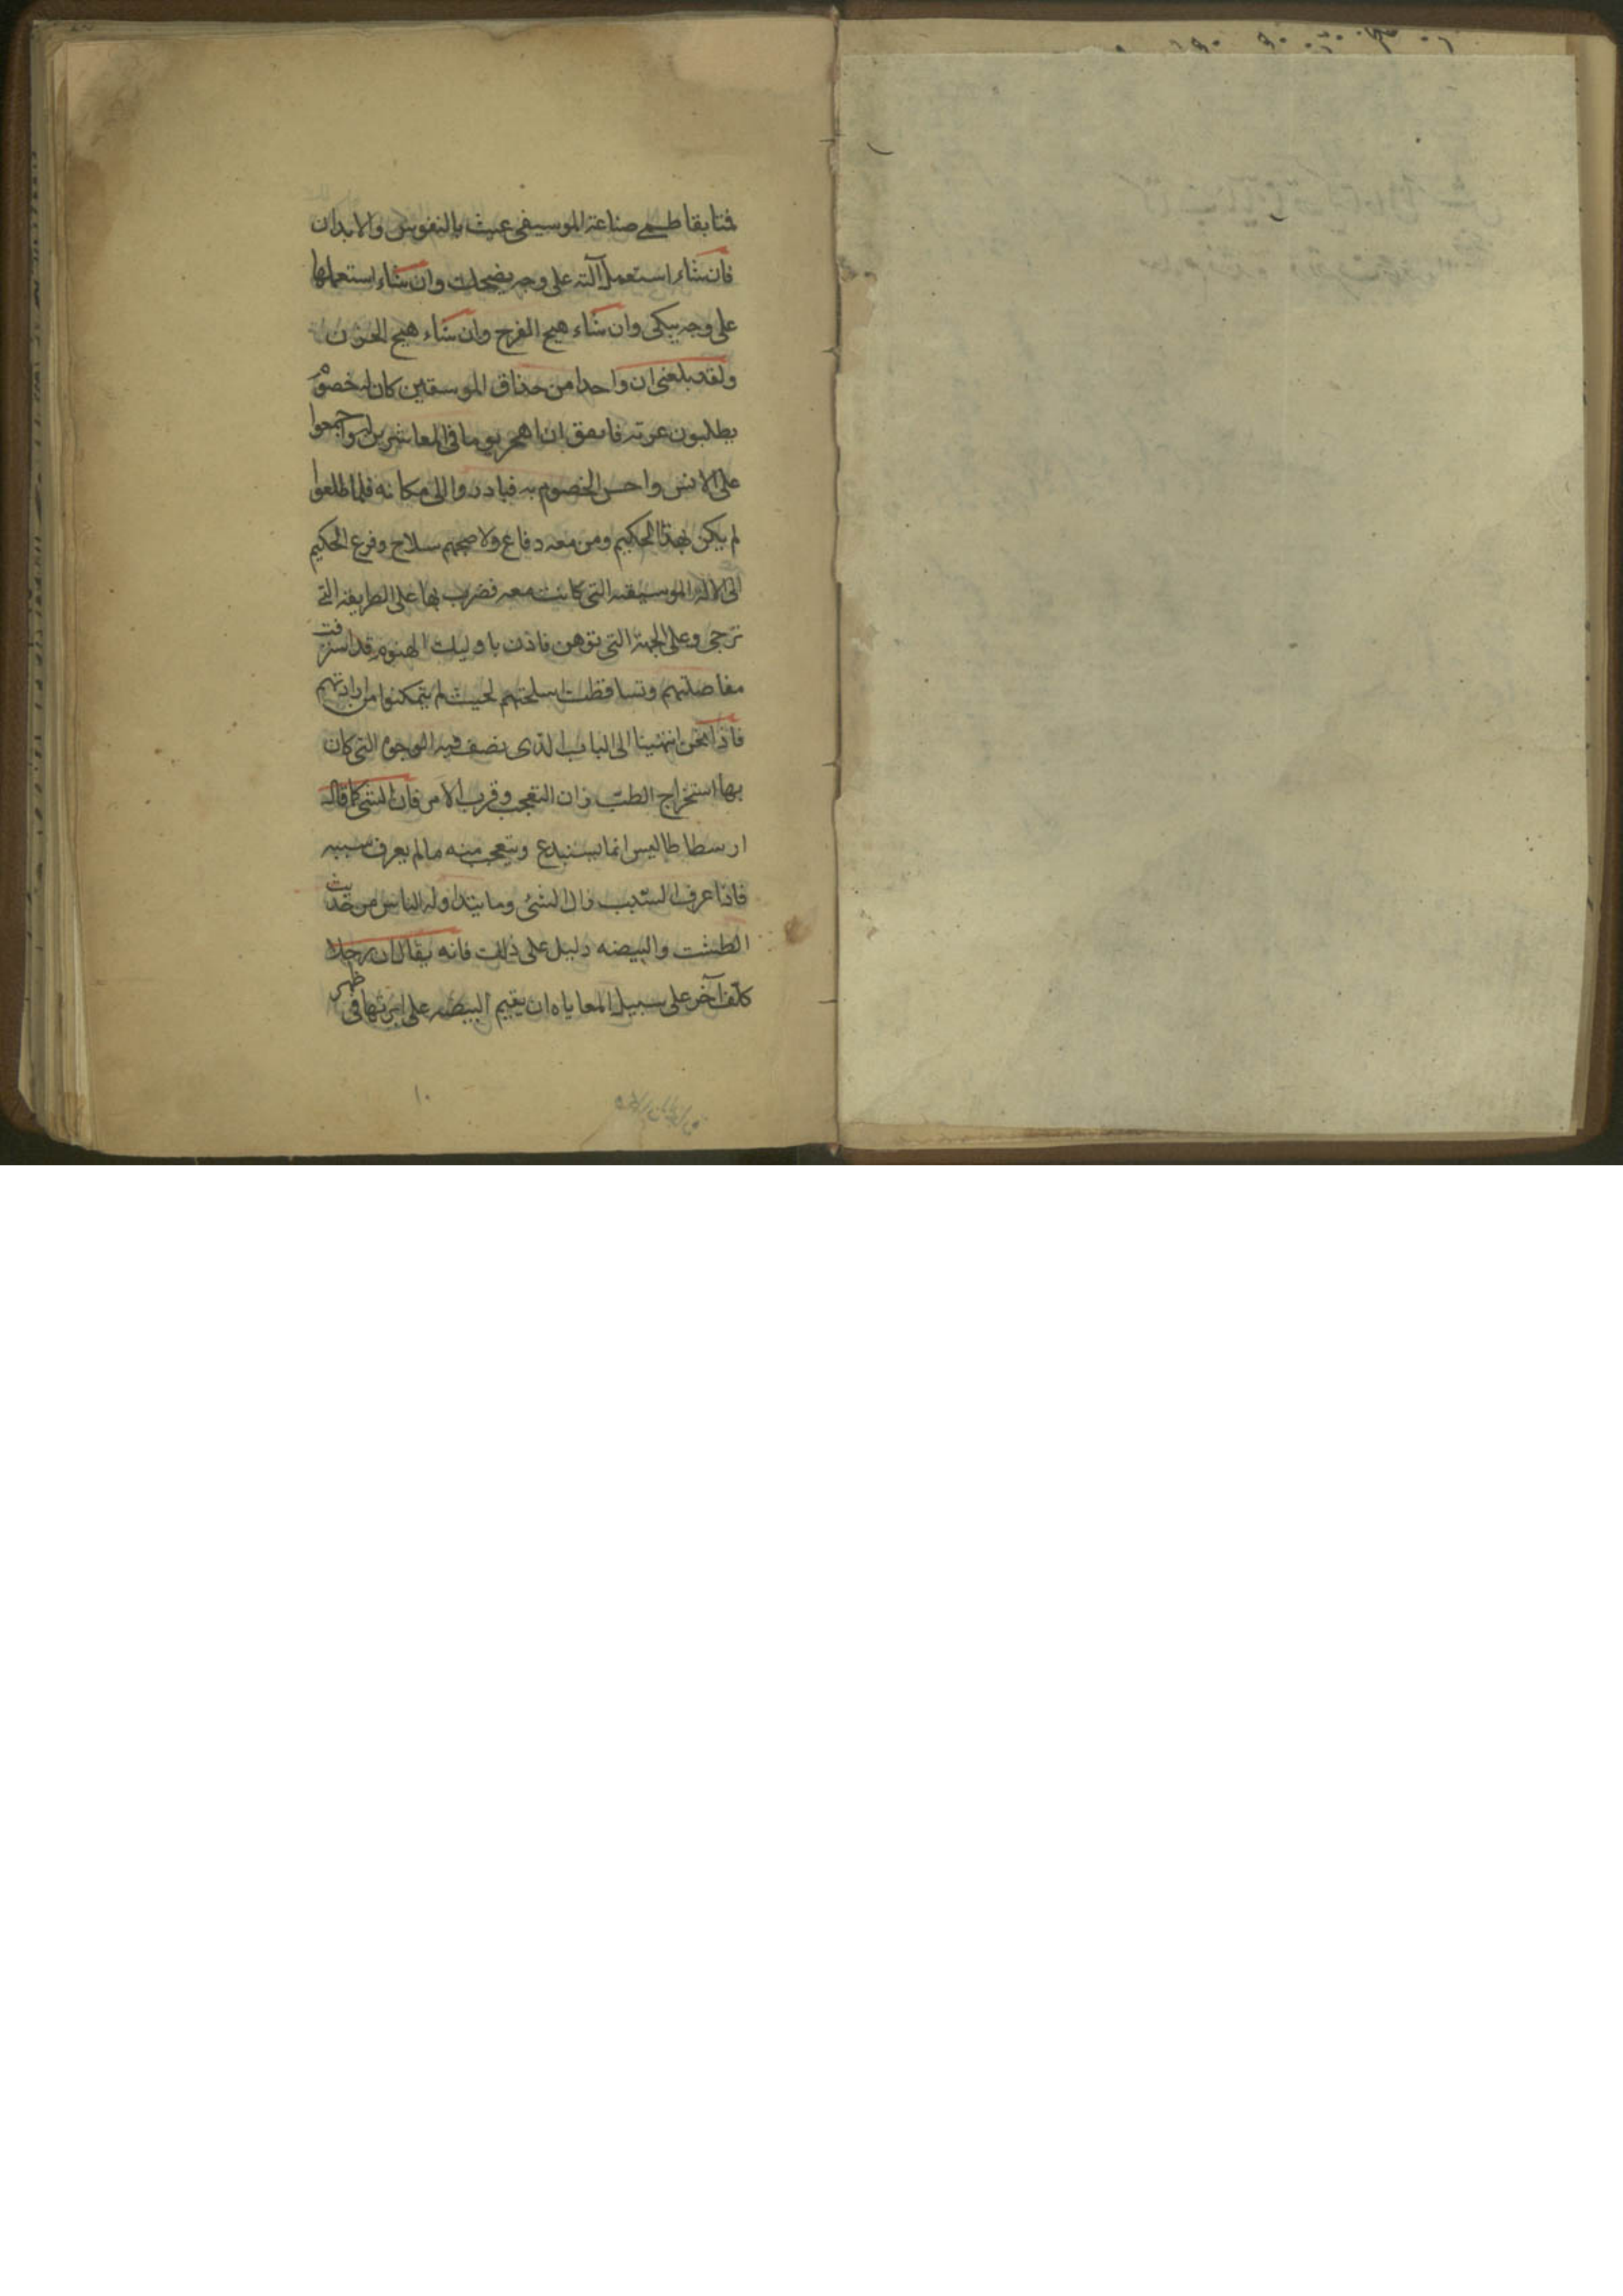 صناعة الموسيقى عبث بالنفوس والابدان
فان شاء استعمل آلته على وجه يضحك وان شاء استعملها
على وجه يبكى وان شاء هيج الفرح وان شاء هيج الحزن
ولقد بلغنى ان واحدا من حذاق الموسيقين كان له خصوم
يطلبون يوما فى المعاشرين له واجمعوا
على الانس واحس الخصوم به فبادروا الى مكانه فلما طلعوا
لم يكن لهذا الحكيم ومن معه دفاع ولا صحبهم سلاح وفزع الحكيم
الى الالة الموسيقيه التى كانت معه فضرب بها على الطريقة التى
ترخى وعلى الجهة التى توهن فاذن باوليك قد استرخت
مفاصلهم وتساقطت اسلحتهم لحيث لم يتمكنوا من ارادتهم
فاذا نحن انتهينا الى الباب الذى نصف فيه الوجوه التى كان
بها استخراج الطب زان التعجب وقرب الامر فان الشى كما قاله
ارسطاطاليس انما يستبدع ويتعجب منه مالم يعرف سببه
فاذا عرف السبب زال الشئ وما يتداوله الناس من حديث
الطشت والبيضه دليل على ذلك فانه يقال ان رجلا
كلف آخر على سبيل المعاياه ان يقيم البيضه على فى ظهر
١٠